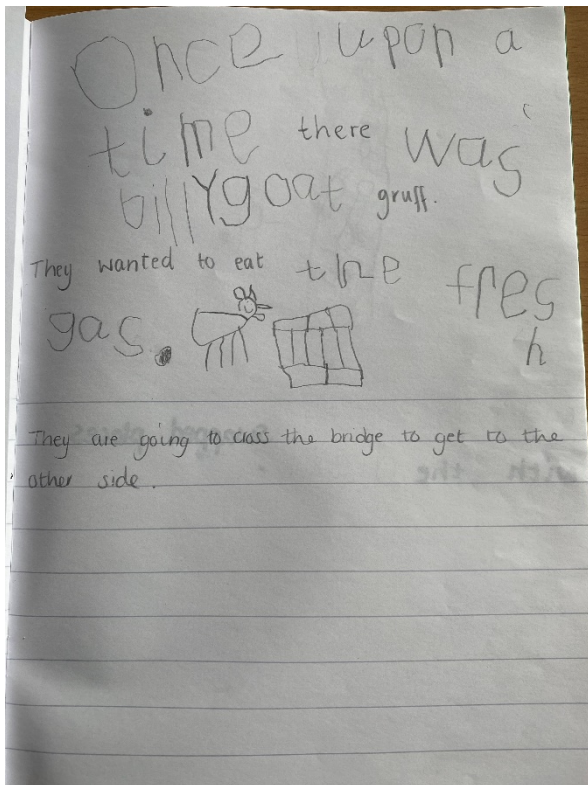 Once upon a
time there was
billygoat gruff.
They wanted to eat the fres
h
gas.
They are going to cross the bridge to get to the
other side.